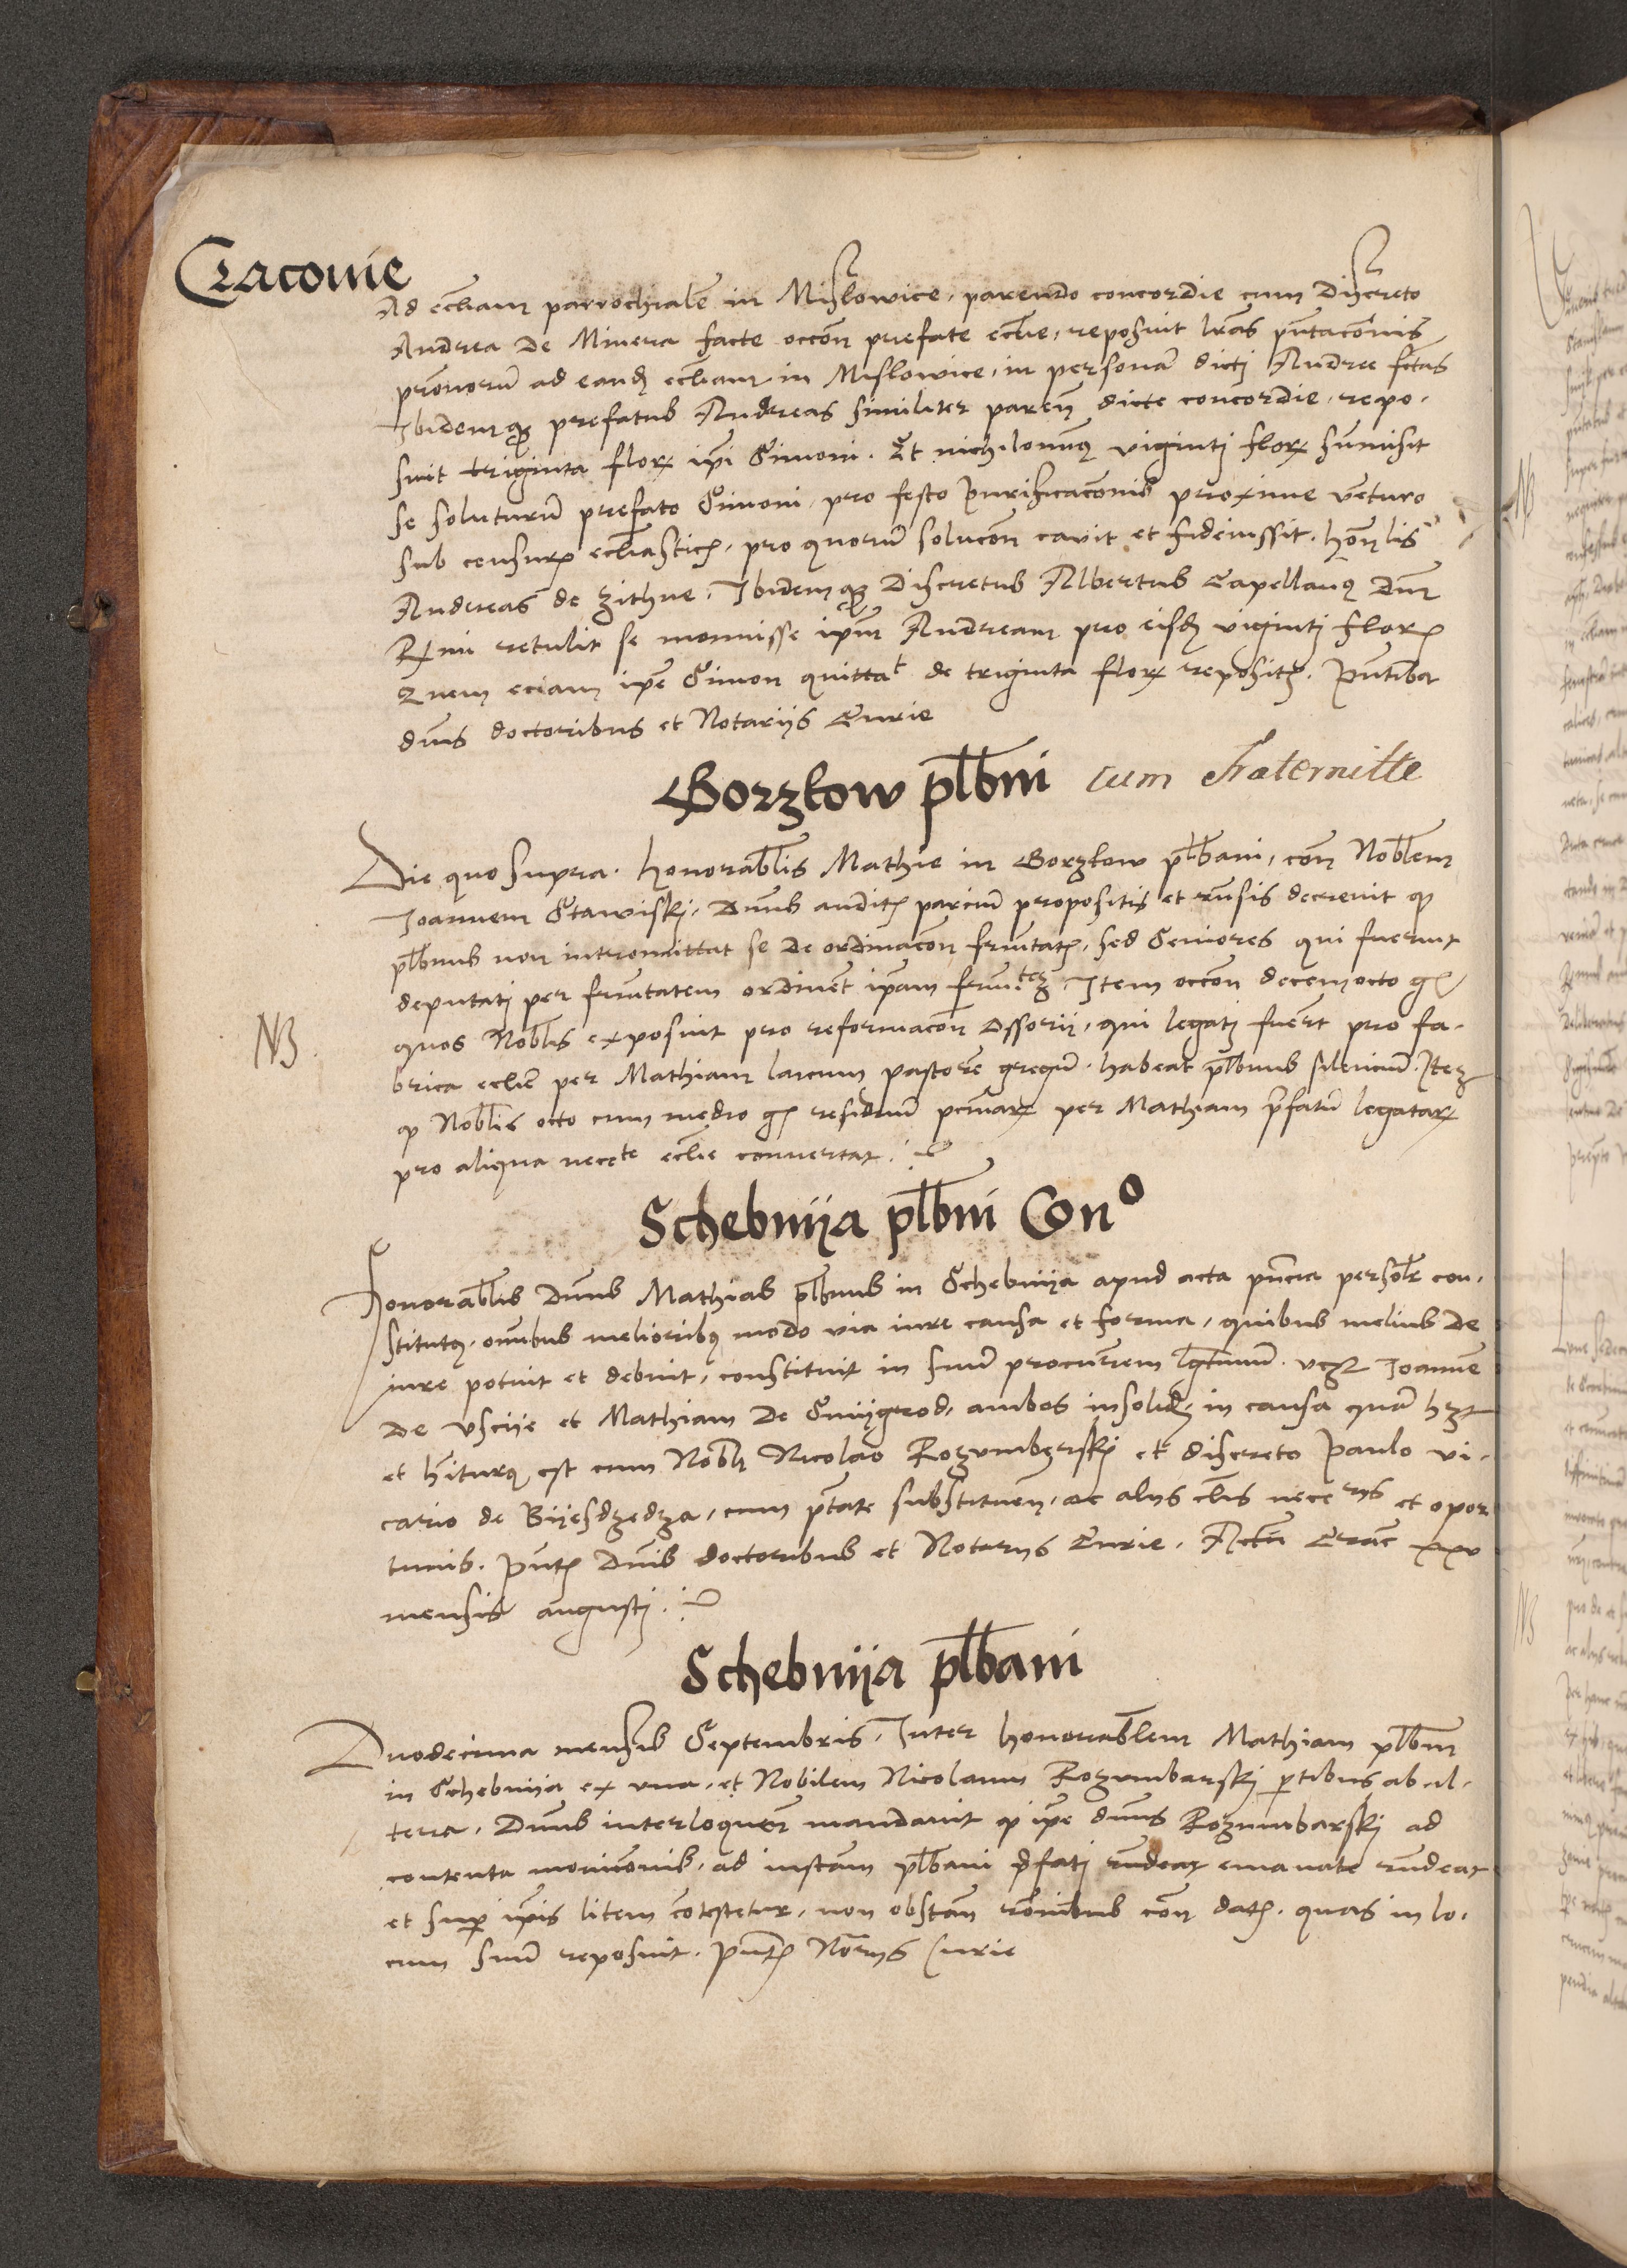 Cracovie
Ad eccl̄iam parrochialē in Mislowice, parendo concordie cum Discreto
Andrea de Minera facte occōn̄ prefate eccl̄ie, reposuit lr̄as pn̄tacōnis
pr̄onorū ad eand̄ eccl̄iam in Mislowice, in personā dictj Andree fctas
Ibidemq̨ prefatus Andreas similiter paren̄ dicte concordie, repo-
suit triginta flor̄ ip̄i Simoni. Et nichilomin9 viginti flor̄ sum̄isit
se soluturū prefato Simoni, pro festo purificacōnis proxime venturo
sub censur̄ eccl̄iastic̄, pro quorū solucōn̄ cavit et fideiussit, hōn̄lis
Andreas de Zithne. Ibidemq̨ Discretus Albertus Capellan9 Dn̄i
Rmi retulit se monuisse ip̄m̄ Andream pro eisd̄ viginti flor̄
Quem eciam ip̄e Simon quittat de triginta flor̄ reposit̄. Pn̄tibꝫ
dn̄is doctoribus et Notarijs Curie
Gorzkow pl̄bni cum Fraternitte
Die quo supra. Honorabl̄is Mathie in Gorzkow pl̄bani, con̄ Nobl̄em
Joannem Stawiskj, Dn̄us audit̄ parciū propositis et rn̄sis decrevit q̨
pl̄bnus non intromittat se de ordinacōn̄ frn̄itat̄, sed Seniores qui fuerint
deputatj per frn̄itatem ordinēt ip̄am frn̄itteꝫ Item occōn̄ decemocto gr̄
quos Nobl̄is exposuit pro reformacōn̄ Ossorij, qui legatj fuer̄t pro fa-
NB
brica eccl̄ie per Mathiam laicum pastorē gregū, habeat pl̄bnus silenciū. Iteꝫ
q̨ Nobl̄is octo cum medio gr̄ residuū pecuniar̄ per Mathiam p̄fatū legatar̄
pro aliqua necc̄te eccl̄ie convertat.
Schebnija pl̄bni Con°
Honorabl̄is Dn̄us Mathias pl̄bnus in Schebnija apud acta pn̄cia personlr̄ con-
stitut9, om̄ibus melioribq̨ modo via iure causa et forma, quibus melius de
iure potuit et debuit, constituit in suū procur̄em lgt̄imū. vcꝫ Joannē
de Uscije et Mathiam de Smijgrod, ambos insolid̄, in causa quā hꝫt
et hītur9 est cum Nobl̄i Nicolao Rozumberskj et discreto Paulo vi-
cario de Bijesdzedza, cum p̄tate substituen̄, ac alijs cl̄is necc̄rijs et opor
tunis. Pn̄t̄ Dn̄is doctoribus et Notarijs Curie. Actū Crac̄ xxv
mensis augustj.
Schebnija pl̄bani
Duodecima mensis Septembris, Inter honorabl̄em Mathiam pl̄bn̄m
in Schebnija ex una, et Nobilem Nicolaum Rozumbarskj p̄tibus ab al-
tera. Dn̄us interloquen̄ mandavit q̨ ip̄e dn̄us Rozumbarskj ad
contenta monicōnis, ad instan̄ pl̄bani p̄fatj emanate rn̄deat
et sup̄ ip̄is litem cōtestetur, non obstan̄ rōnibus con̄ dat̄, quas in lo-
cum suū reposuit. Pn̄t̄ Nōrijs Curie